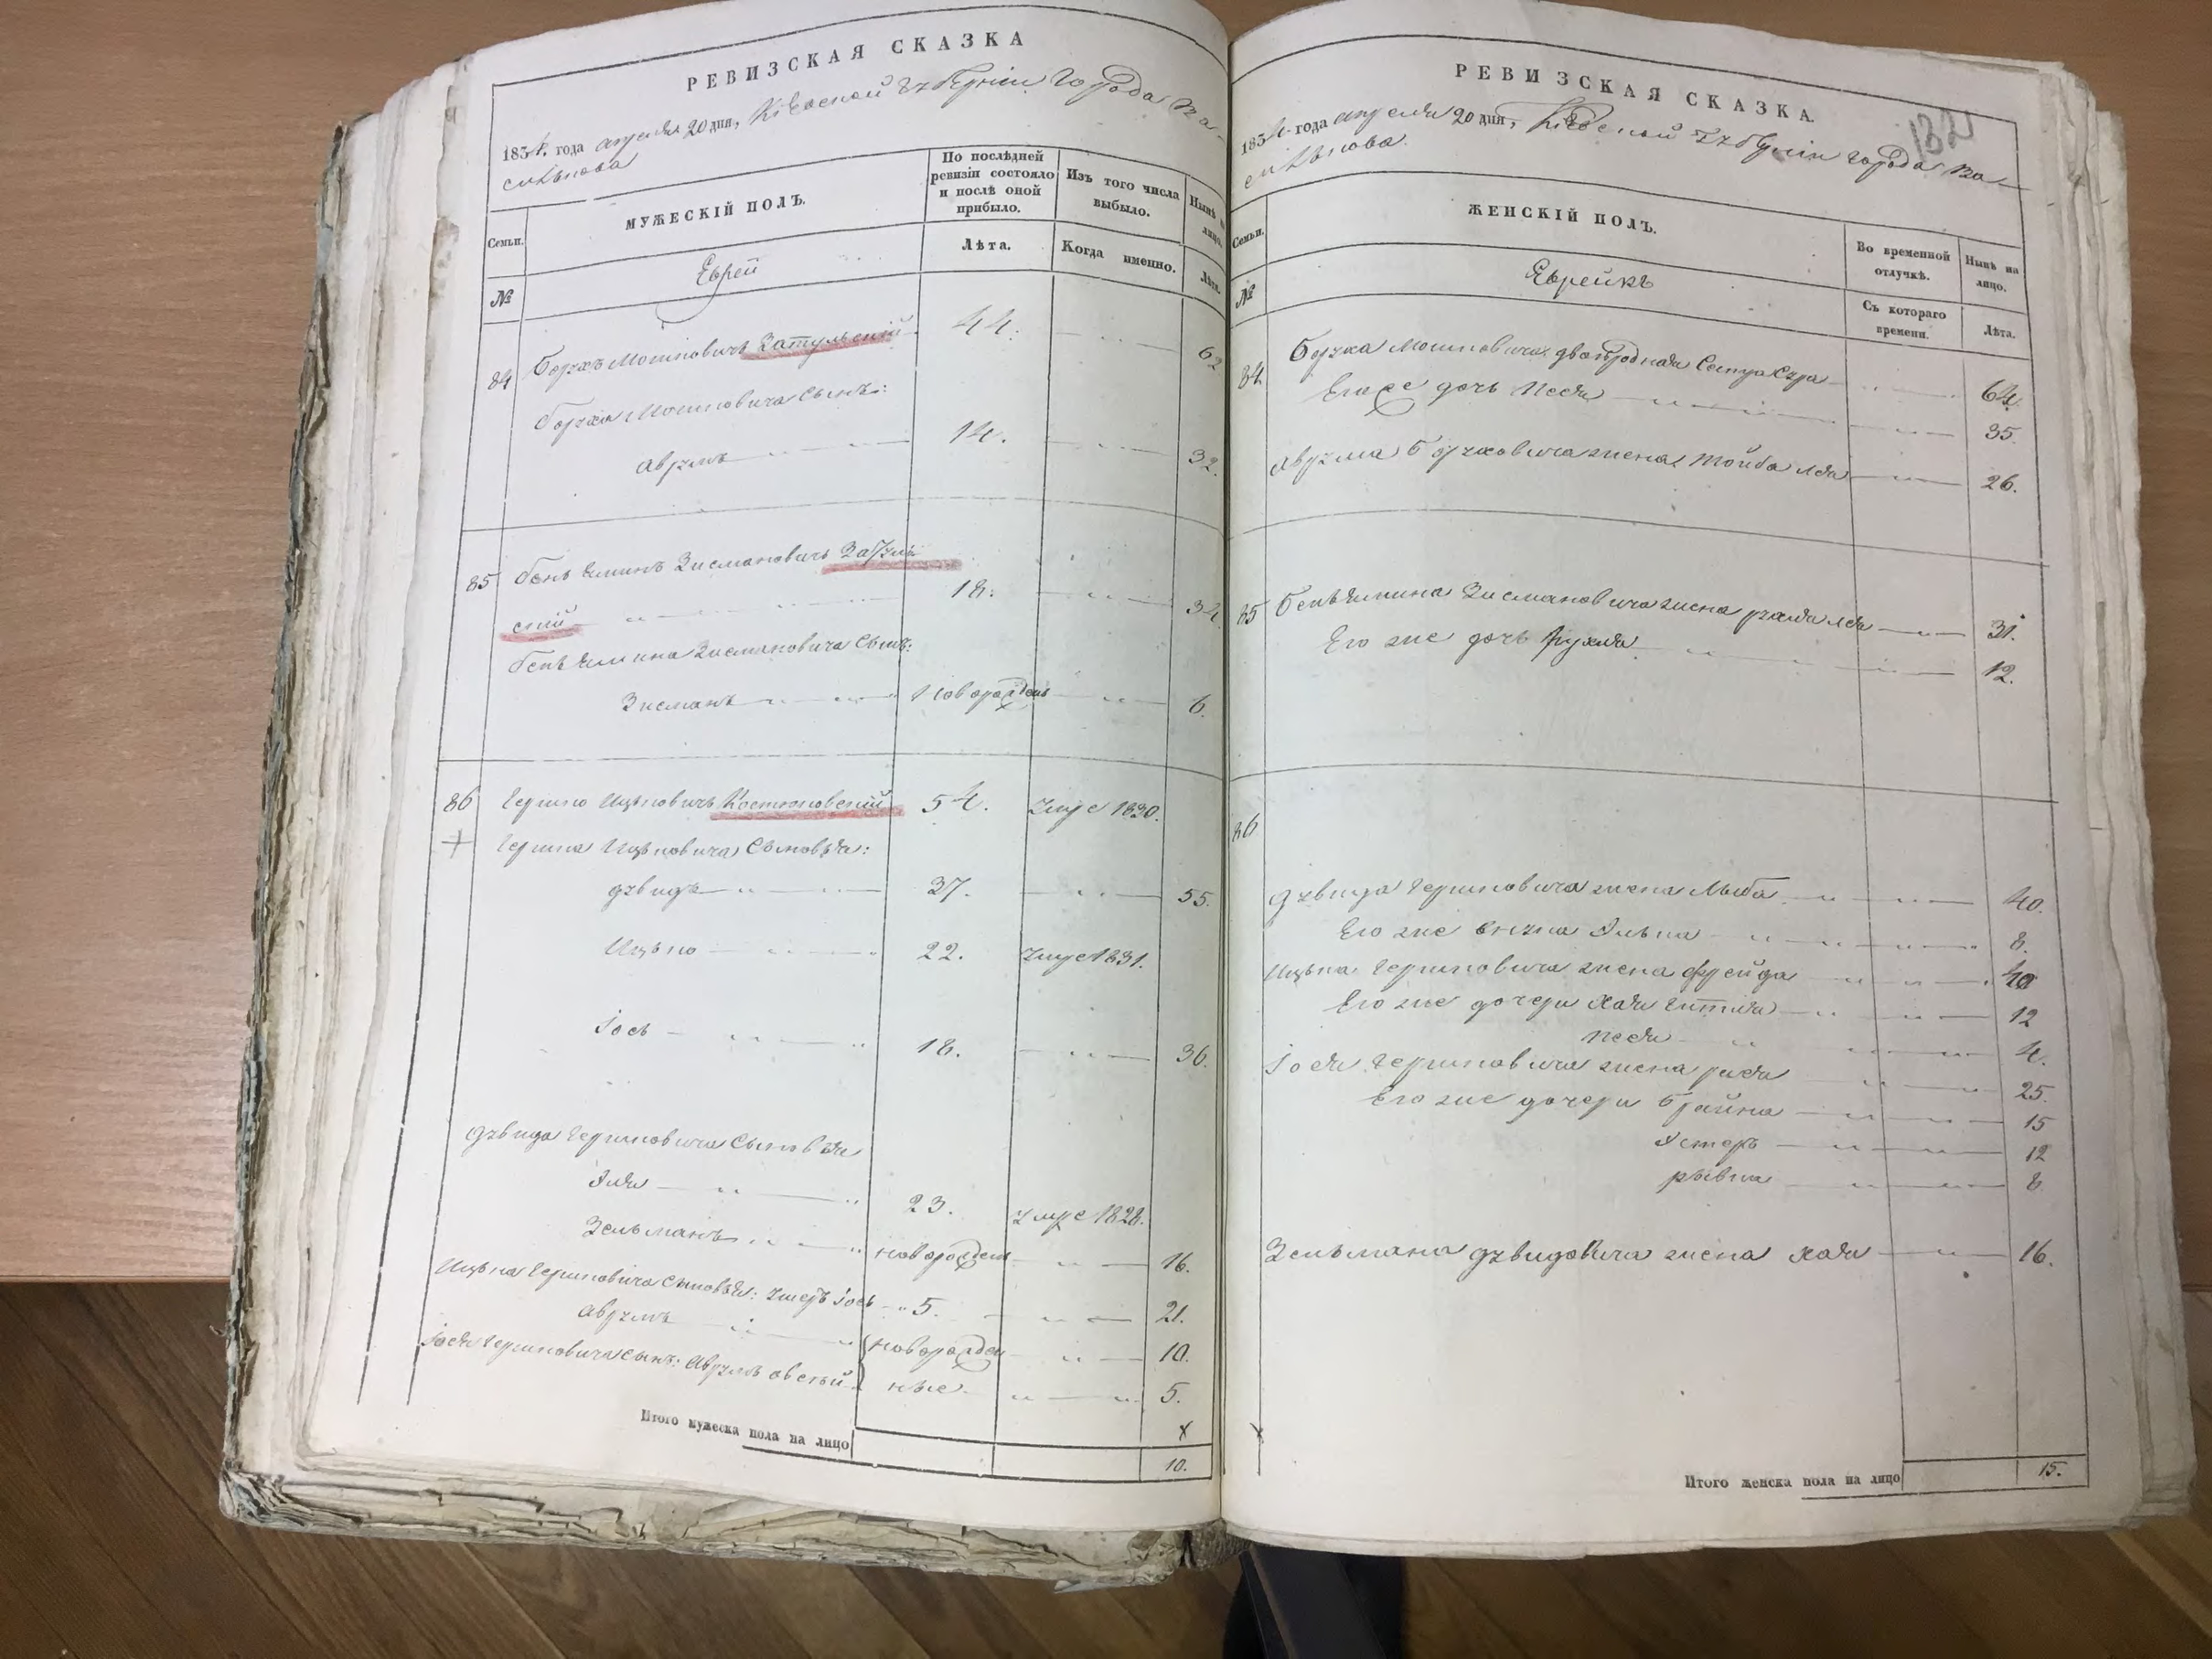 РЕВИЗСКАЯ СКАЗКА
1834. года апреля 20 дня, Кіевской губерніи города Ва-
силькова
Семьи.
МУЖЕСКІЙ ПОЛЪ.
По послѣдней ревизіи состояло и послѣ оной прибыло.
Изъ того числа выбыло.
Нынѣ на лицо.
№
Еврей
Лѣта.
Когда именно.
Лѣта.
84 Борухъ Мошковичъ Затульскій 44. 62
Боруха Мошковича сынъ:
Аврумъ 14. 32.
85 Беньяминъ Зисмановичъ
скій 18. 34
Беньямина Зисмановича сынъ:
Зисманъ новорожден 6.
86 Гершко Ицковичъ 54. умре 1830.
Гершка Ицковича сыновья:
Дувидъ 37. 55.
Ицько 22. умре 1831.
Іось 18. 36.
Дувида Гершковича сыновья
Эля 23. умре 1828.
Зельманъ новорожден 16.
Ицька Гершковича сыновья: Іось 5. 21.
Аврумъ новорожден 10.
Іося Гершковича сынъ: Аврумъ ные 5.
Итого мужеска пола на лицо 10.
РЕВИЗСКАЯ СКАЗКА.
132
1834 года апреля 20 дня, Кіевской губерніи города Ва-
силькова.
Семьи.
ЖЕНСКІЙ ПОЛЪ.
Во временной отлучкѣ.
Нынѣ на лицо.
№
Еврейкъ
Съ котораго времени.
Лѣта.
84 Боруха Мошковича двоюродная сестра Сура 64.
Его же дочь Песя 35.
Аврума Боруховича жена Тойба Лея 26.
85 Беньямина Зисмановича жена Рухля Лея 31.
Его же дочь 12.
86
Дувида Гершковича жена Лыба 40.
Его же внука Элька 8.
Ицька Гершковича жена Фрейда 40
Его же дочери Хая Гитля 12
Песя 4.
Іося Гершковича жена Рися 25.
Его же дочери Брайна 15
Эстеръ 12
Рывка 8
Зельмана Дувидовича жена Хая 16.
Итого женска пола на лицо 15.